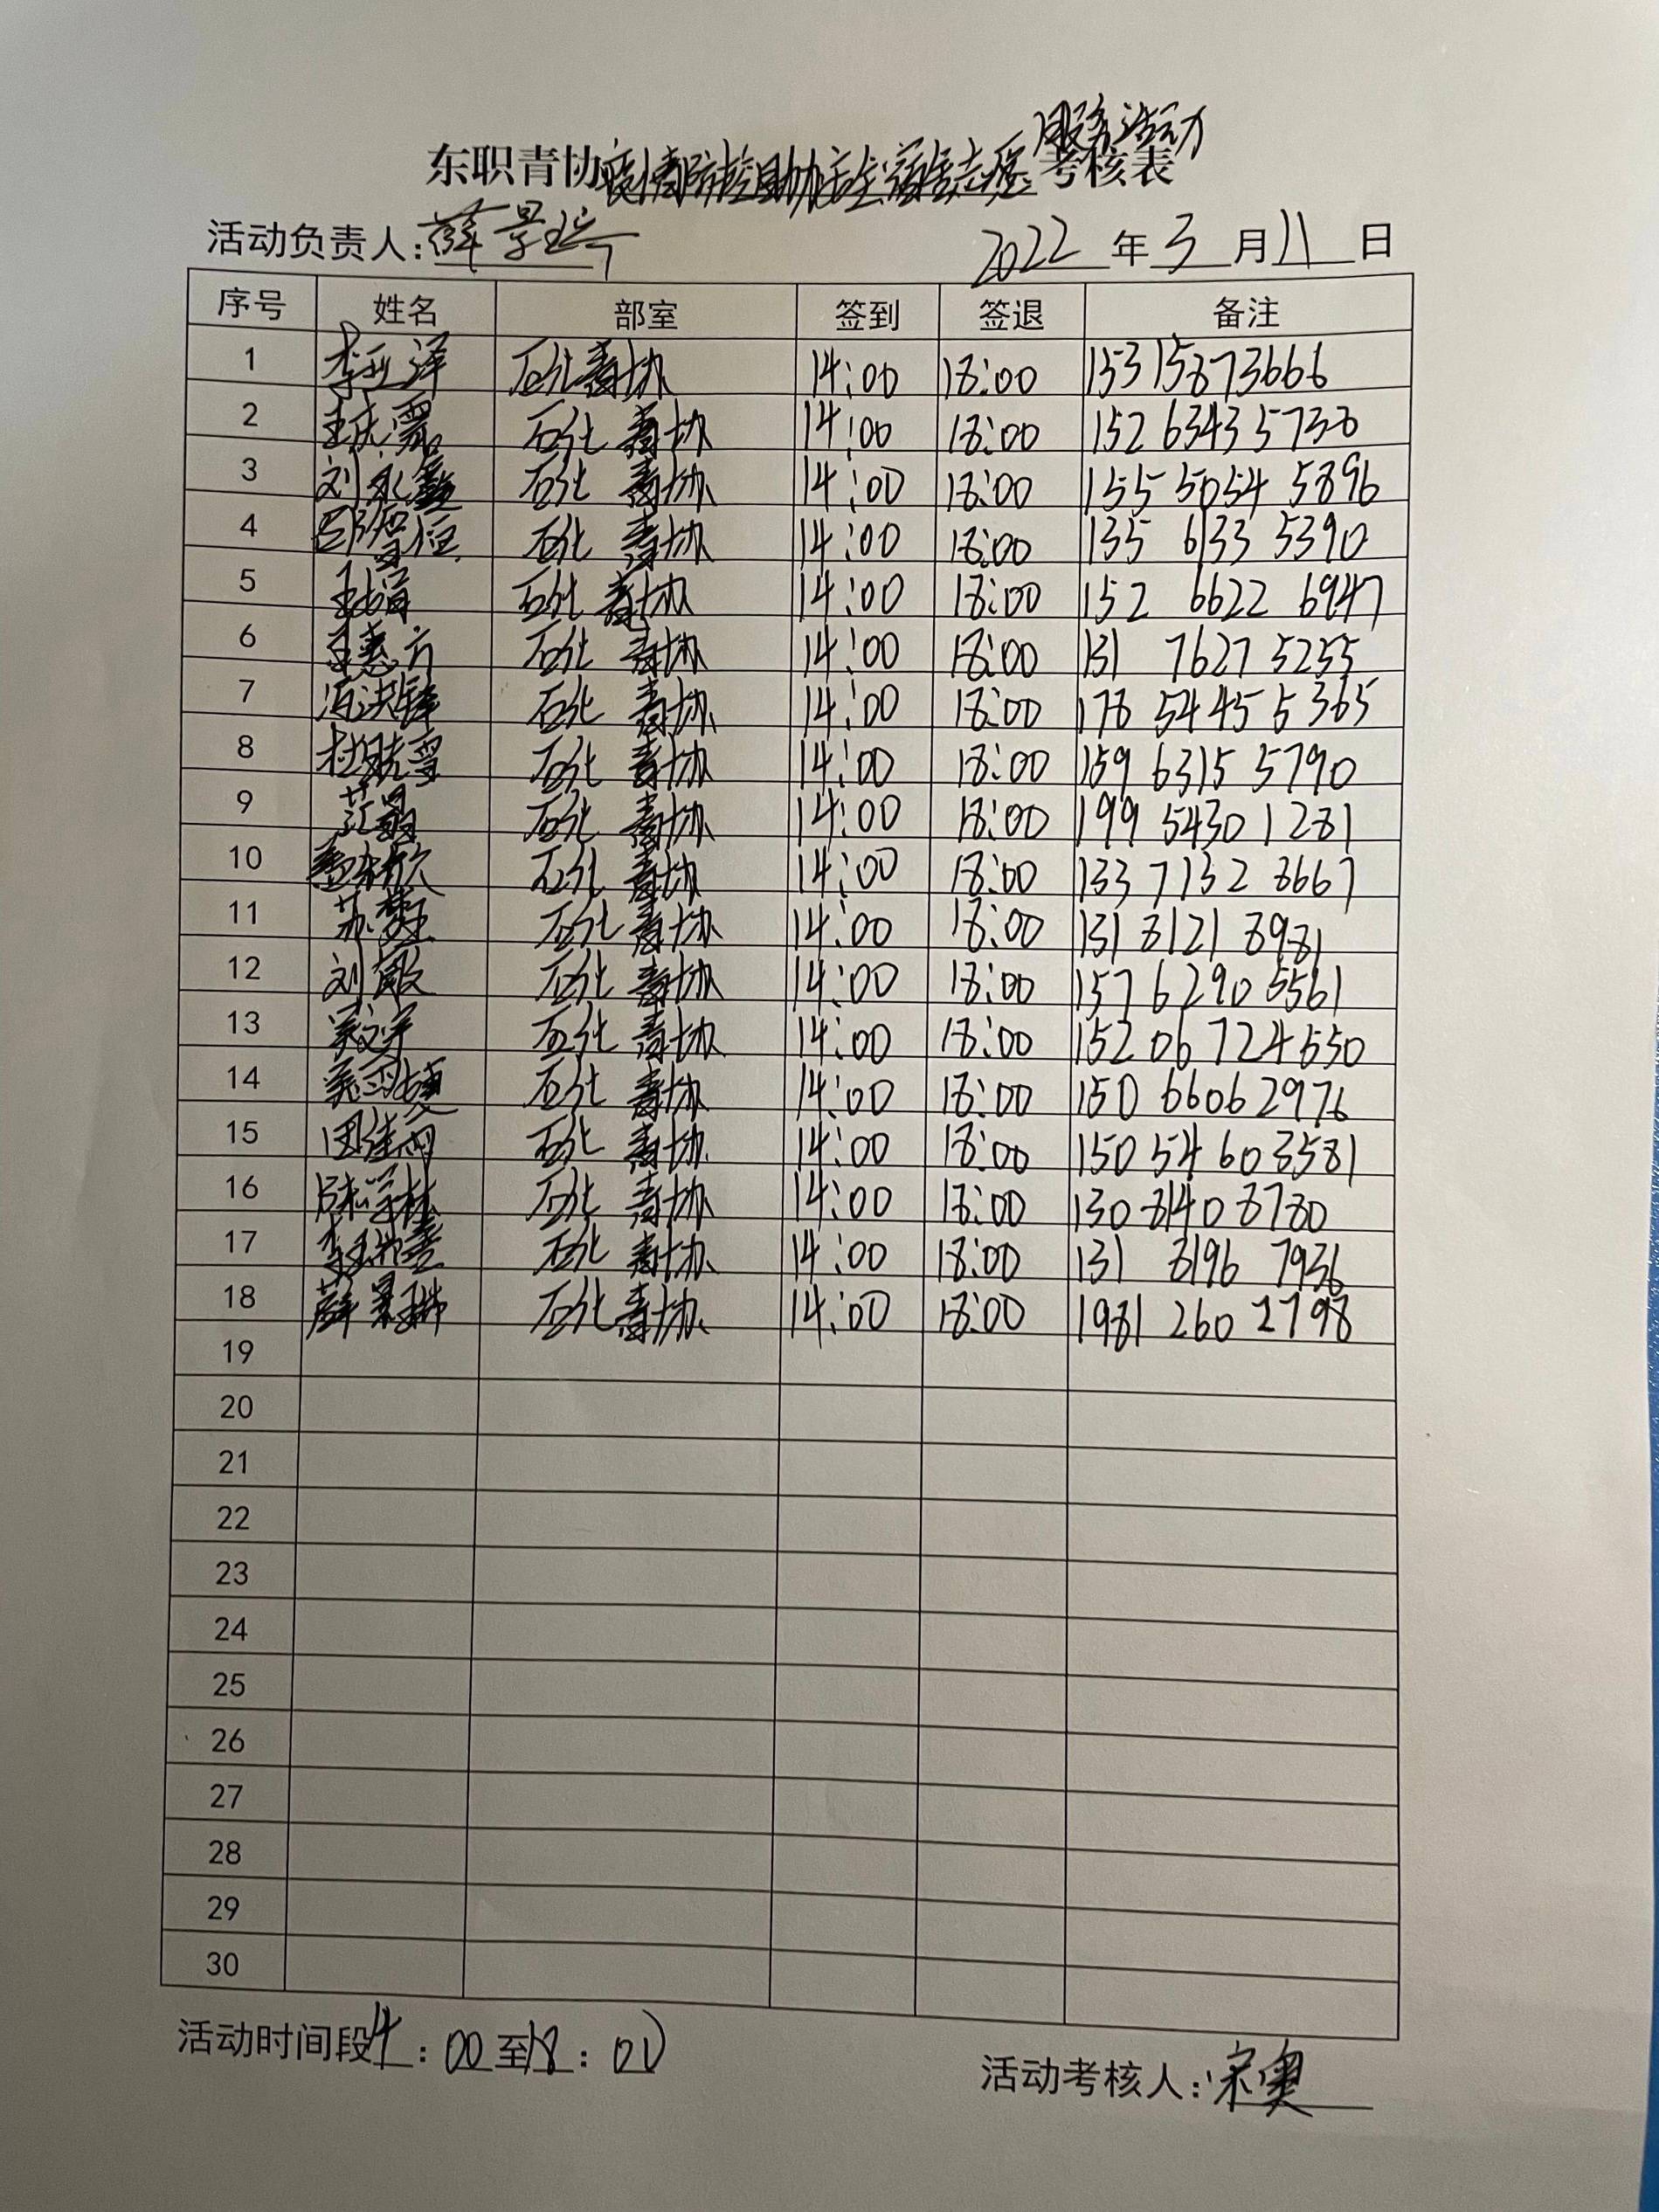 服务活动
东职青协疫情防控助力主宿舍志愿考核表
活动负责人:薛景瑞 2022年3月11日
序号 姓名 部室 签到 签退 备注
1 李亚洋 石化青协 14:00 18:00 15315873666
2 石化青协 14:00 18:00 152 6343 5738
3 刘永鑫 石化青协 14:00 18:00 155 5054 5896
4 石化青协 14:00 18:00 135 6133 5390
5 石化青协 14:00 18:00 152 6622 6947
6 王惠方 石化青协 14:00 18:00 131 7627 5255
7 石化青协 14:00 18:00 178 5445 5365
8 杜晓雪 石化青协 14:00 18:00 159 6315 5790
9 石化青协 14:00 18:00 199 5430 1281
10 石化青协 14:00 18:00 133 7132 8667
11 石化青协 14:00 18:00 131 8121 8981
12 刘敏 石化青协 14:00 18:00 157 6290 5561
13 石化青协 14:00 18:00 152 06 724550
14 石化青协 14:00 18:00 150 6606 2976
15 田佳雨 石化青协 14:00 18:00 150 54 603581
16 石化青协 14:00 18:00 130 8140 8780
17 石化青协 14:00 18:00 131 8196 7936
18 薛景瑞 石化青协 14:00 18:00 1981 260 2798
19
20
21
22
23
24
25
26
27
28
29
30
活动时间段14:00至18:00
活动考核人:宋奥